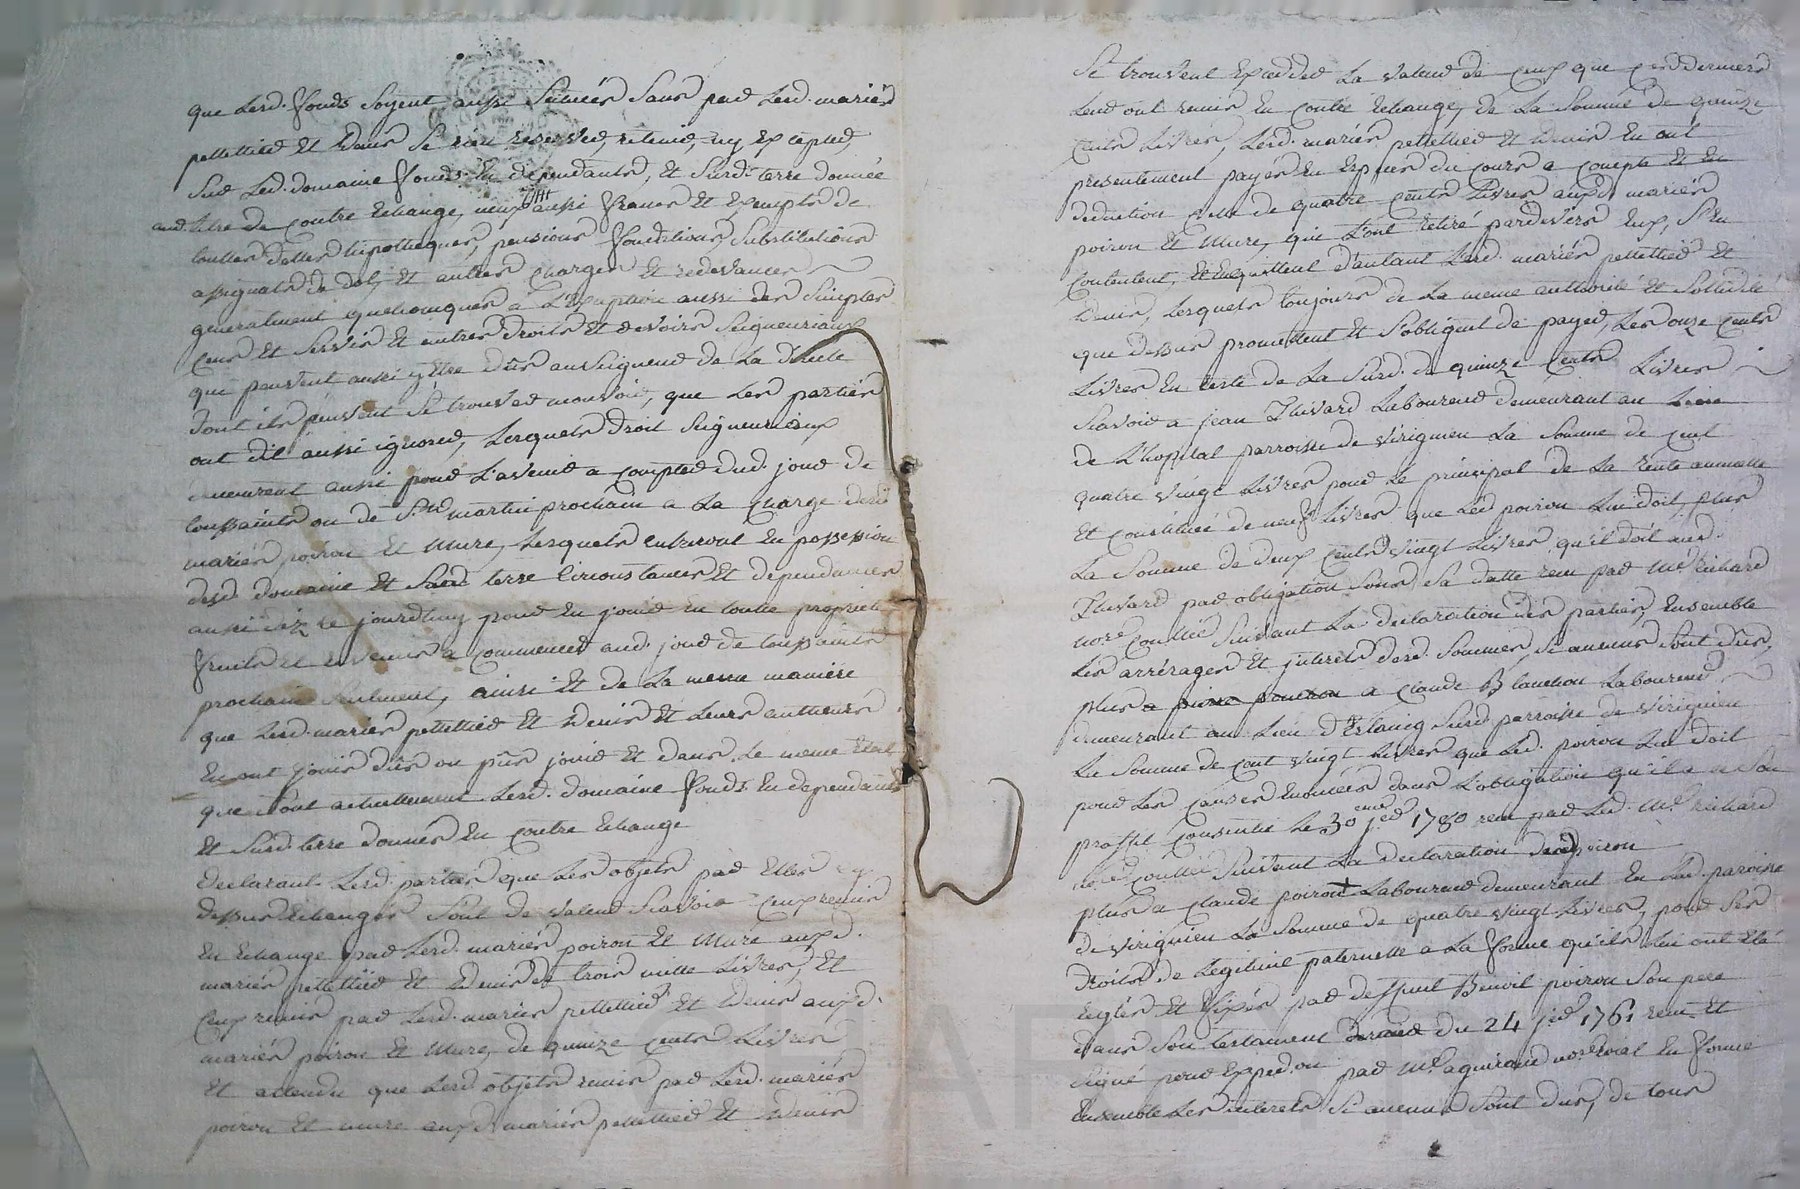 que lesd. ffonds soyent aussi scitués sans par lesd. mariés
pellettier et denis se rien reserver, retenir, ny excepter,
sur led. domaine ffonds en dependants, et surd. terre donnée
aud. titre de contre echange, iceux aussi ffrancs et exempts de
touttes dettes hipotheques, pensions ffondations, substitutions
assignats de dot, et autres charges et redevances
generalment quelconques a l'exeption aussi des simples
cens et servis et autres droits et devoirs seigneuriaux
qui peuvent aussi y être dûs au seigneur de la directe
dont ils peuvent se trouver mouvoir, que les parties
ont dit aussi ignorer, lesquels droit seigneuriaux
demeurent aussi pour l'avenir a compter dud. jour de
toussaints ou de St. martin prochain a la charge desd.
mariés poiron et mure, lesquels entreront en possession
desd. domaine et surd. terre circonstances et dependances
aussi dez ce jourdhuy pour en jouir en toutte proprieté
ffruits et revenus a commencer aud. jour de toussaints
prochain seulement, ainsi et de la meme maniere
que lesd. mariés pellettier et denis et leurs autheurs
en ont jouis dûs ou pûs jouir et dans le meme etat
que sont actuellement lesd. domaine ffonds en dependants
et surd. terre donnés en contre echange
declarant lesd. parties que les objets par elles cy
dessus echangés sont de valeur scavoir ceux remis
en echange par lesd. mariés poiron et mure auxd.
mariés pellettier et denis de trois mille livres, et
ceux remis par lesd. mariés pellettier et denis auxd.
mariés poiron et mure, de quinze cents livres
et attendu que lesd. objets remis par lesd. mariés
poiron et mure auxd. mariés pellettier et denis
se trouvent exceder la valeur de ceux que ces derniers
leur ont remis en contre echange, de la somme de quinze
cents livres, lesd. mariés pellettier et denis en ont
presentement payés en especes du cours a compte et en
deduction celle de quatre cents livres auxd. mariés
poiron et mure, qui l'ont retiré pardevers eux, s'en
contentent, et en quittent d'autant lesd. mariés pellettier et
denis, lesquels toujours de la meme authorité et solidité
que dessus promettent et s'obligent de payer, les onze cents
livres en reste de la surd. de quinze cents livres
scavoir a jean laboureur demeurant au lieu
de l'hopital parroisse de virignieu la somme de cent
quatre vingt livres pour le principal de la rente annuelle
et constituée de neuf livres que led. poiron lui doit, plus
la somme de deux cents vingt livres qu'il doit aud.
par obligation sous sa datte recu par Me. richard
nore. suivant la declaration des parties, ensemble
les arrérages et interets desd. sommes, si aucuns sont dûs,
plus a claude Blanchon laboureur
demeurant au lieu d'Estaing surd. parroisse de virignieu
la somme de cent vingt livres que led. poiron lui doit
pour les causes enoncées dans l'obligation qu'il a a son
proffit consentie le 30eme jer 1780 recu par led. Me. richard
nore. suivant la declaration dud. poiron
plus a claude poiron + laboureur demeurant en lad. paroisse
de virignieu la somme de quatre vingt livres, pour ses
droits de legitime paternelle a la fforme qu'ils lui ont été
reglés et ffixés par deffunt Benoit poiron son pere
dans son testament du 24 jer 1761 recu et
signé pour exped.on par Me. nore. roial en fforme
ensemble les interets si aucuns sont dus, de tous